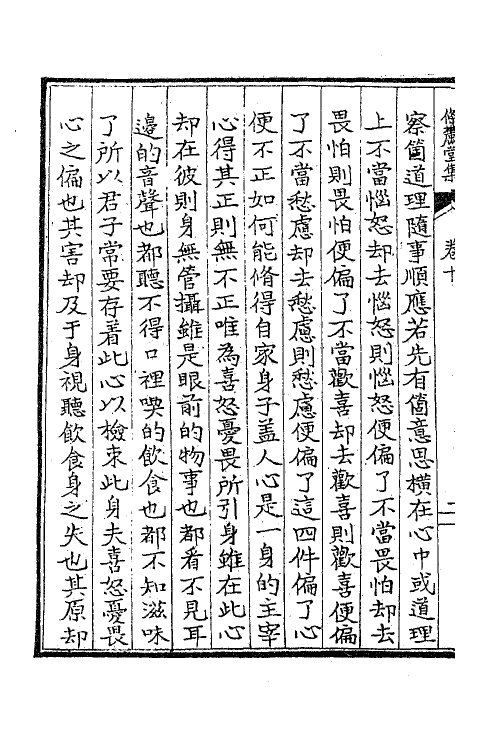 脩麓堂集
卷十
二
察箇道理隨事順應若先有箇意思橫在心中或道理
上不當惱怒却去惱怒則惱怒便偏了不當畏怕却去
畏怕則畏怕便偏了不當歡喜却去歡喜則歡喜便偏
了不當愁慮却去愁慮則愁慮便偏了這四件偏了心
便不正如何能脩得自家身子蓋人心是一身的主宰
心得其正則無不正唯為喜怒憂畏所引身雖在此心
却在彼則身無管攝雖是眼前的物事也都看不見耳
邊的音聲也都聽不得口裡喫的飲食也都不知滋味
了所以君子常要存着此心以檢束此身夫喜怒憂畏
心之偏也其害却及于身視聽飲食身之失也其原却